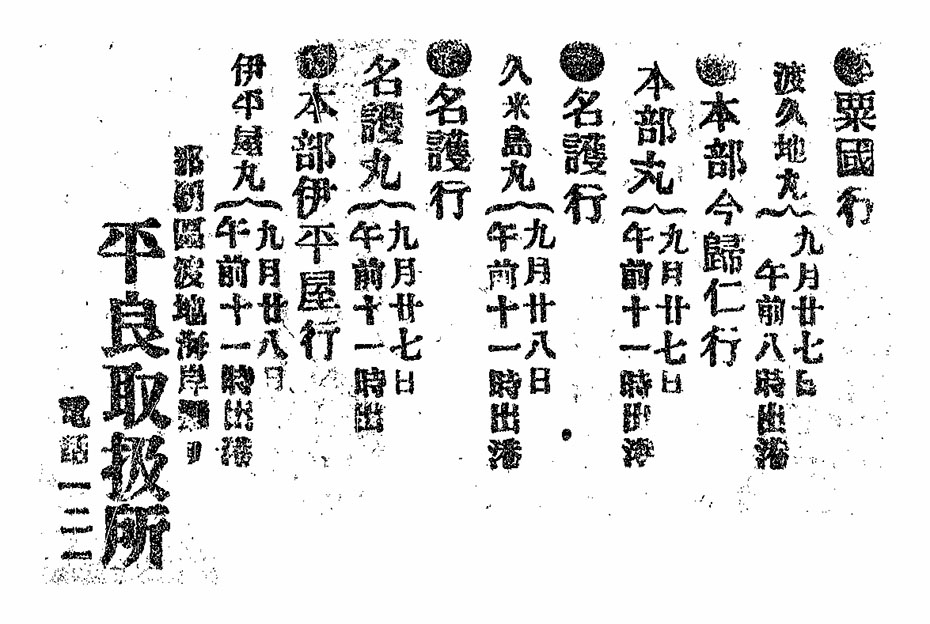 ●粟國行
渡久地丸
九月廿七日
午前八時出港
●本部今歸仁行
本部丸
九月廿七日
午前十一時出港
●名護行
久米島丸
九月廿八日
午前十一時出港
●名護行
名護丸
九月廿七日
午前十一時出
●本部伊平屋行
伊平屋丸
九月廿八日
午前十一時出港
那覇區渡地海岸通リ
平良取扱所
電話一三二